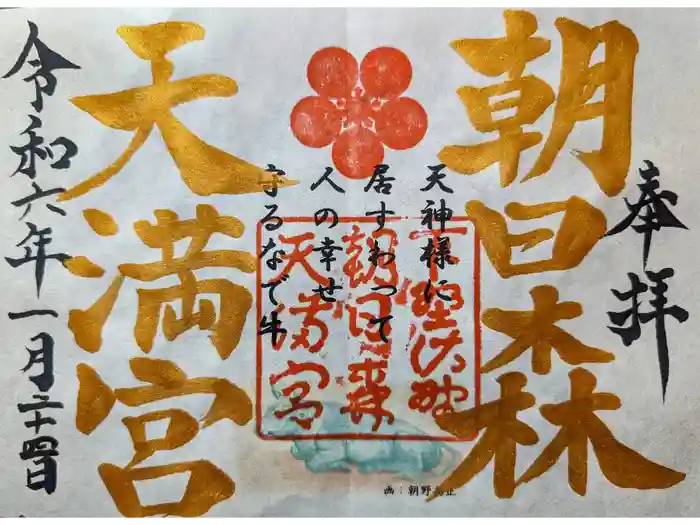 奉拝
朝日森
天神様に
居すわって
人の幸せ
守るなで牛
朝日森
天満宮
天満宮
令和六年一月二十四日